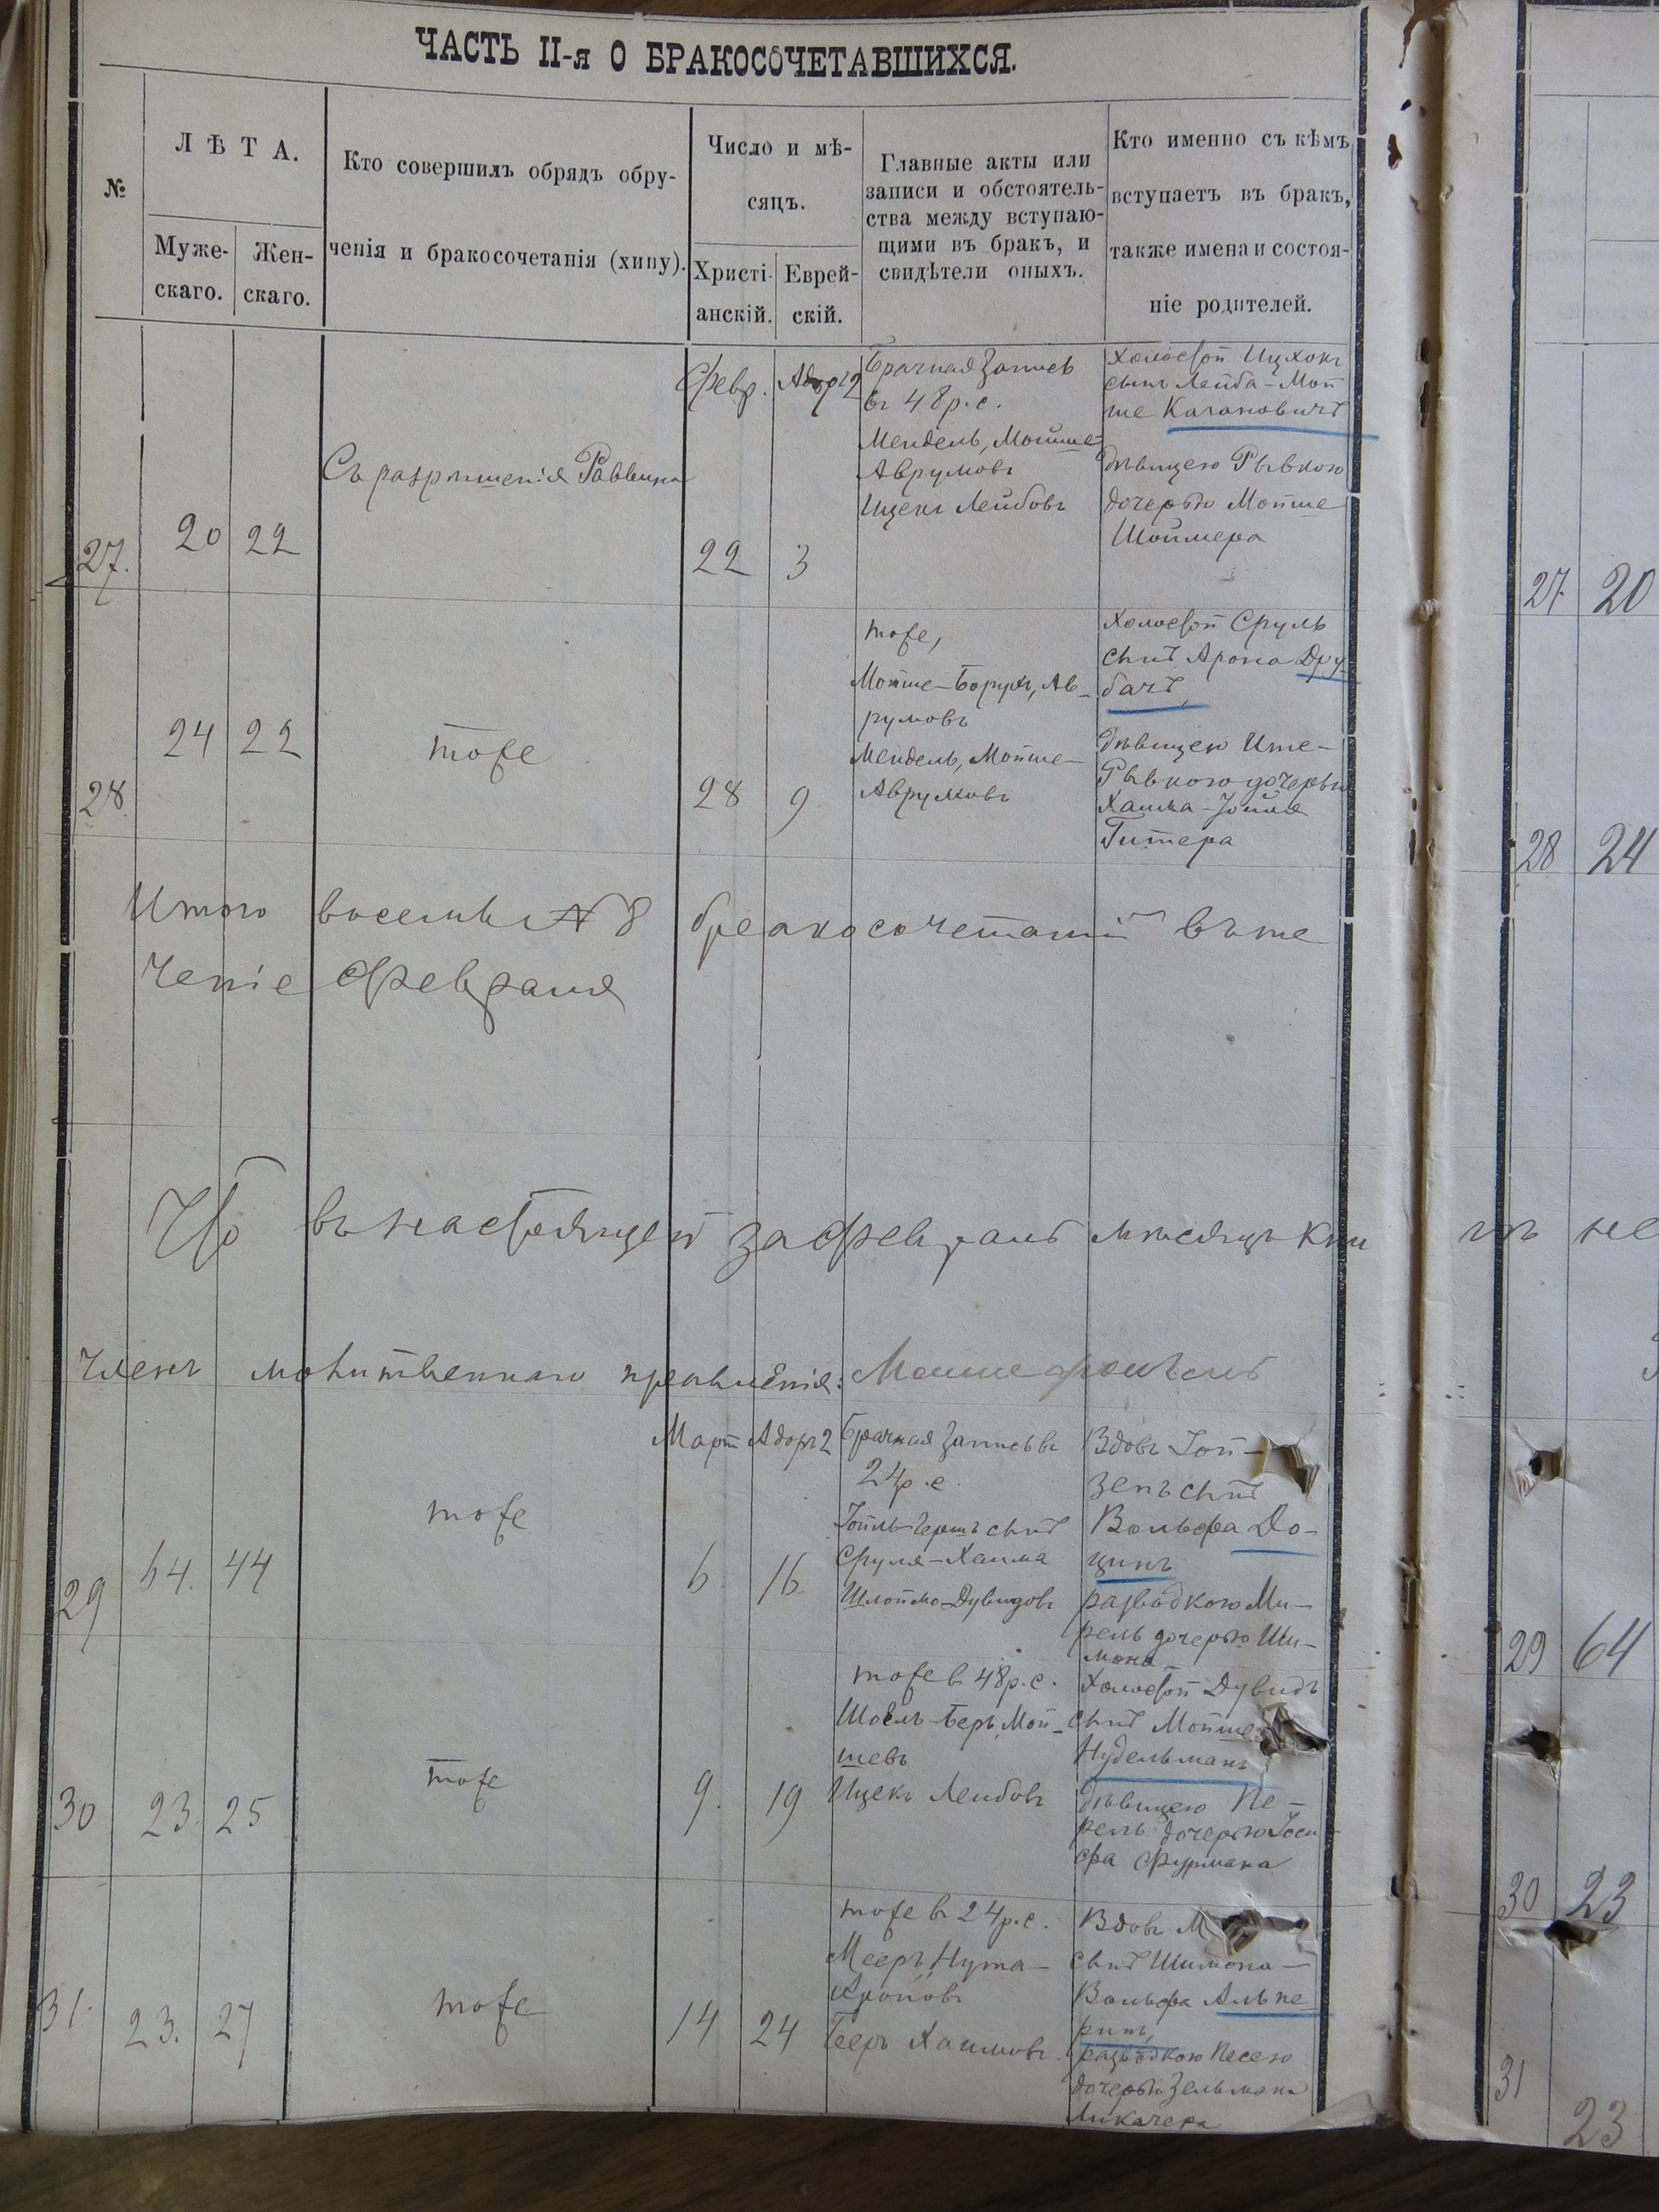 ЧАСТЬ II-я О БРАКОСОЧЕТАВШИХСЯ.
№
ЛѢТА.
Муже-
скаго.
Жен-
скаго.
Кто совершилъ обрядъ обру-
ченія и бракосочетанія (хипу).
Число и мѣ-
сяцъ.
Христі-
анскій.
Еврей-
скій.
Главные акты или
записи и обстоятель-
ства между вступаю-
щими въ бракъ, и
свидѣтели оныхъ.
Кто именно съ кѣмъ
вступаетъ въ бракъ,
также имена и состоя-
ніе родителей.
27.
20
22
Съ разрѣшенія Раввина
Февр.
22
Адоръ 2
3
Брачная запись
въ 48 р. с.
Мендель, Мойше-
Аврумовъ
Ицекъ Лейбовъ
Холостой Ицхокъ
сынъ Лейба-Мой
ше Кагановичъ
дѣвицею Рывкою
дочерью Мойше
Шоймера
28
24
22
тоже
28
9
тоже,
Мойше-Борухъ, Ав-
румовъ
Мендель, Мойше-
Аврумовъ
Холостой Сруль
сынъ Арона Дру-
бачъ,
дѣвицею Ите-
Рывкою дочерью
Хаима-Іойня
Гитера
Итого восемь № 8 бракосочетаній въ те
ченіе Февраля
Что въ настоящей за Февраль мѣсяцъ кни
гѣ не
Членъ молитвеннаго правленія: Мошие
29
64.
44
тоже
Март
6
Адоръ 2
16
Брачная запись въ
24 р. с.
Іойль-Гершъ сынъ
Сруля-Хаима
Шлойма Дувидовъ
Вдовъ Іой-
зепъ сынъ
Вольфа До-
цинъ
разводкою Ми-
рель дочерью Ши-
мона
30
23.
25
тоже
9.
19
тоже в 48 р. с.
Шоель-Беръ, Мой-
шевъ
Ицекъ Лейбовъ
Холостой Дувидъ
сынъ Мойше
Нудельманъ
дѣвицею Пе-
рель дочерью Іоси-
фа Фурмана
31.
23.
27
тоже
14
24
тоже въ 24 р. с.
Мееръ, Нута-
Ароновъ
Беръ Хаимовъ
Вдовъ М
сынъ Шимона-
Вольфа Альпе
ринъ,
разводкою Песею
дочерью Зельмана
Ликачера
27.
20
28
24
29
64
30
23
31
23